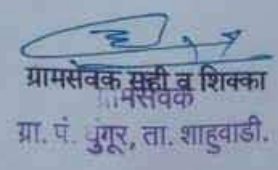 ग्रामसेवक सही व शिक्का
ग्रामसेवक
ग्रा. पं. युंगूर, ता. शाहुवाडी.